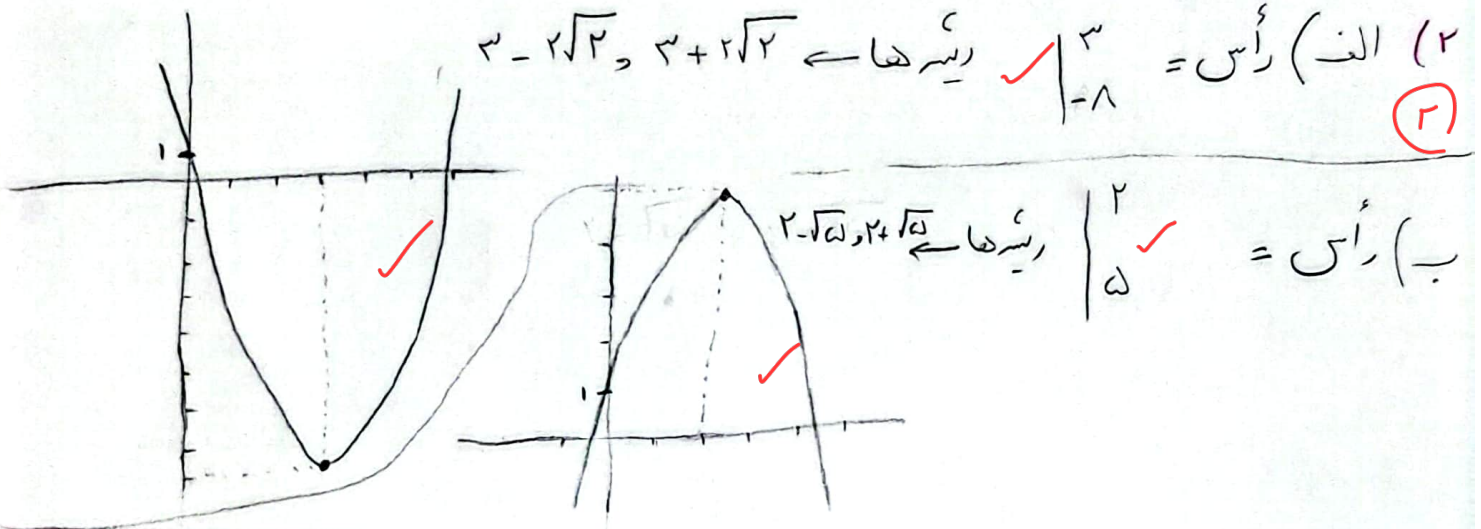 ۲) الف) رأس = ۳ -۸ ریشه ها ← ۳+۲√۲ و ۳-۲√۲
۲
۱
ب) رأس = ۲ ۵ ریشه ها ← ۲+√۵ و ۲-√۵
۱